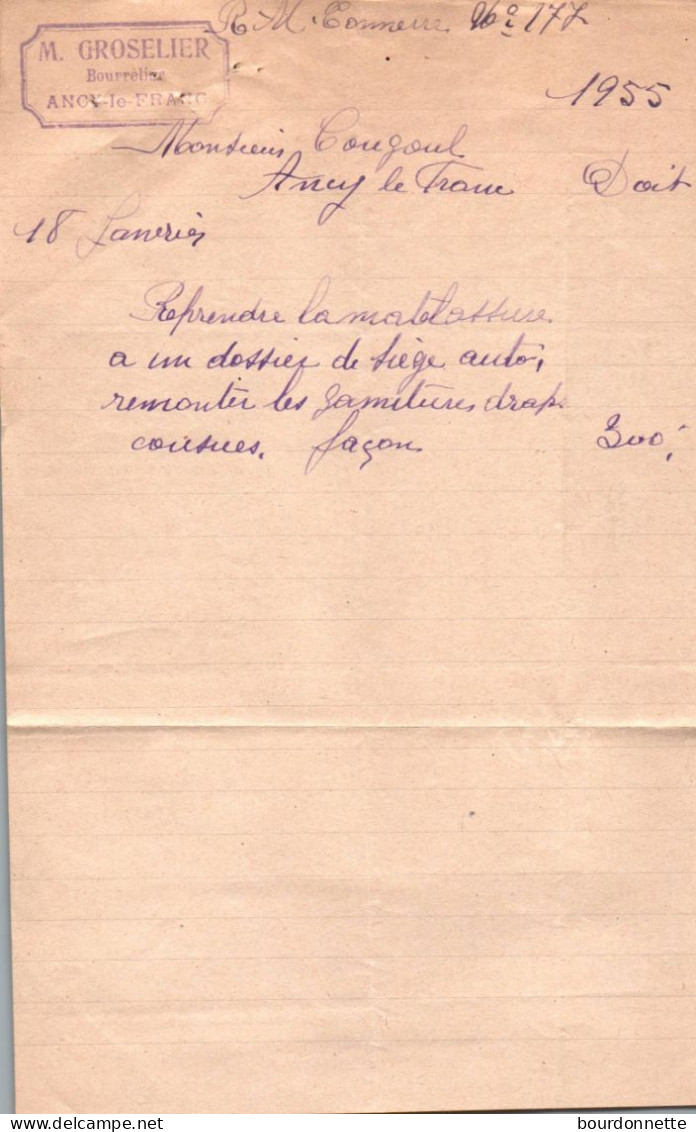 R. M. Tonnerre No 177
M. GROSELIER
Bourrelier
ANCY-le-FRANC
1955
Monsieur Cougoul
Ancy le Franc Doit
18 Janvier
Reprendre la matelassure
a un dossier de siège auto,
remonter les garnitures drap
cousues. façon 300,
delcampe.net
bourdonnette